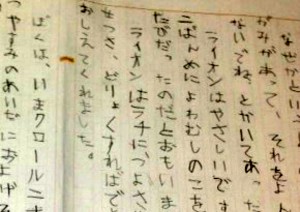 なぜかという
がみがあって、それをよん
ないでね、とかいてあった
ライオンはやさしいです
二ばんめによわむしのこを
たびだったのだとおもいま
ライオンはラチにつよさ
をつき、どりょくすればで
おしえてくれました。
ぼくは、いまクロール二
つやすみのあいだにおよげる